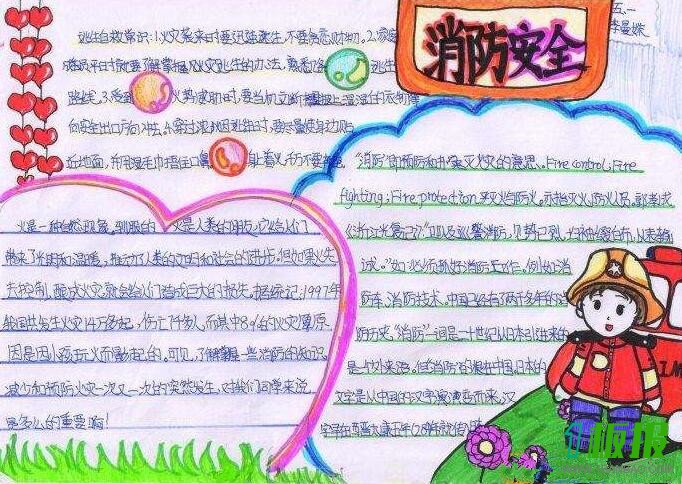 消防安全
五、一
李曼姝
逃生自救常识:1.火灾袭来时要迅速逃生,不要贪恋财物。2.家庭
成员平时就要了解掌握火灾逃生的办法,熟悉
逃生
路线。3.受到
火势威胁时,要当机立断披上湿
的衣物
向安全出口方向冲去。4.穿过浓烟逃生时,要尽量使身体贴
近地面,并用湿毛巾捂住口鼻
身上着火,千万不要奔跑
火是一种自然现象,驯服的火是人类的朋友,它给人们
带来了光明和温暖,推动了人类的文明和社会的进步。但如果火失
去控制,酿成火灾就会给人们造成巨大的损失。据统计:1997年
我国共发生火灾14万多起,伤亡
而其中8%的火灾原
因是因小孩玩火而引起的。可见,了解掌握一些消防的知识,
减少和预防火灾一次又一次的突然发生,对我们同学来说
是多么的重要啊!
"消防"即预防和扑灭火灾的意思。Fire control; Fire
fighting; Fire protection.
消防员。郭孝成
《浙江光复记》
见势
诚。"如:必须抓好消防工作,例如:消
防车,消防技术。中国已经有了两千多年的消
防历史,"消防"一词是二十世纪从日本引进来的
是个外来语。但消防的根在中国,日本的
文字是从中国的汉字演变而来,汉
字早在西晋太康五年(284年)就
板报